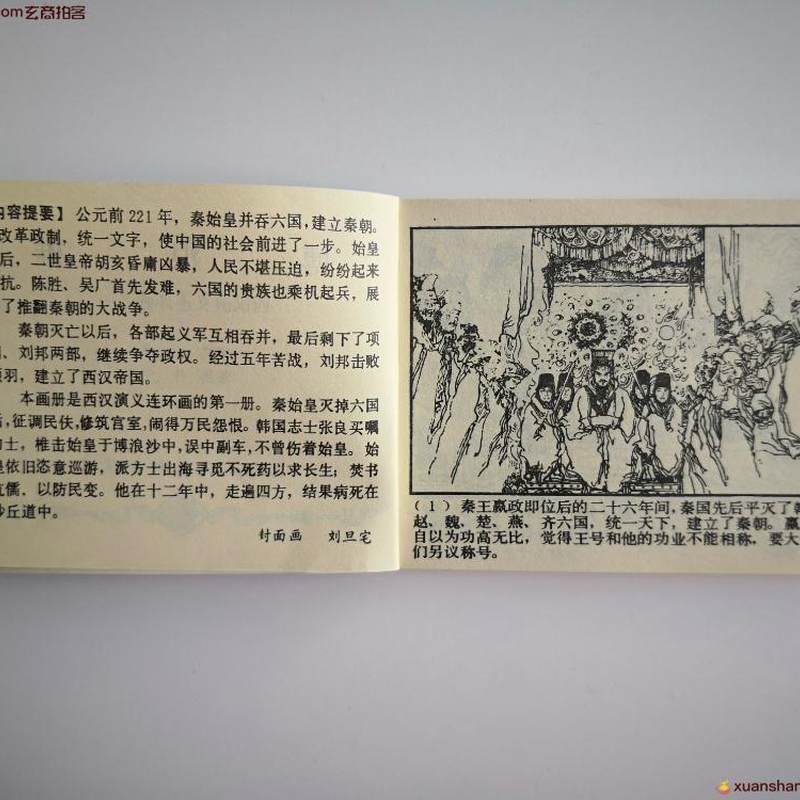 om玄商拍客
内容提要】 公元前221年，秦始皇并吞六国,建立秦朝。
改革政制，统一文字，使中国的社会前进了一步。始皇
后，二世皇帝胡亥昏庸凶暴，人民不堪压迫，纷纷起来
抗。陈胜、吴广首先发难，六国的贵族也乘机起兵，展
了推翻秦朝的大战争。
秦朝灭亡以后，各部起义军互相吞并，最后剩下了项
、刘邦两部，继续争夺政权。经过五年苦战，刘邦击败
项羽，建立了西汉帝国。
本画册是西汉演义连环画的第一册。秦始皇灭掉六国
后,征调民伕,修筑宫室,闹得万民怨恨。韩国志士张良买嘱
力士，椎击始皇于博浪沙中,误中副车,不曾伤着始皇。始
皇依旧恣意巡游，派方士出海寻觅不死药以求长生；焚书
坑儒，以防民变。他在十二年中，走遍四方，结果病死在
沙丘道中。
封面画 刘旦宅
（1）秦王嬴政即位后的二十六年间,秦国先后平灭了韩
赵、魏、楚、燕、齐六国，统一天下，建立了秦朝。嬴
自以为功高无比，觉得王号和他的功业不能相称，要大
们另议称号。
xuanshan